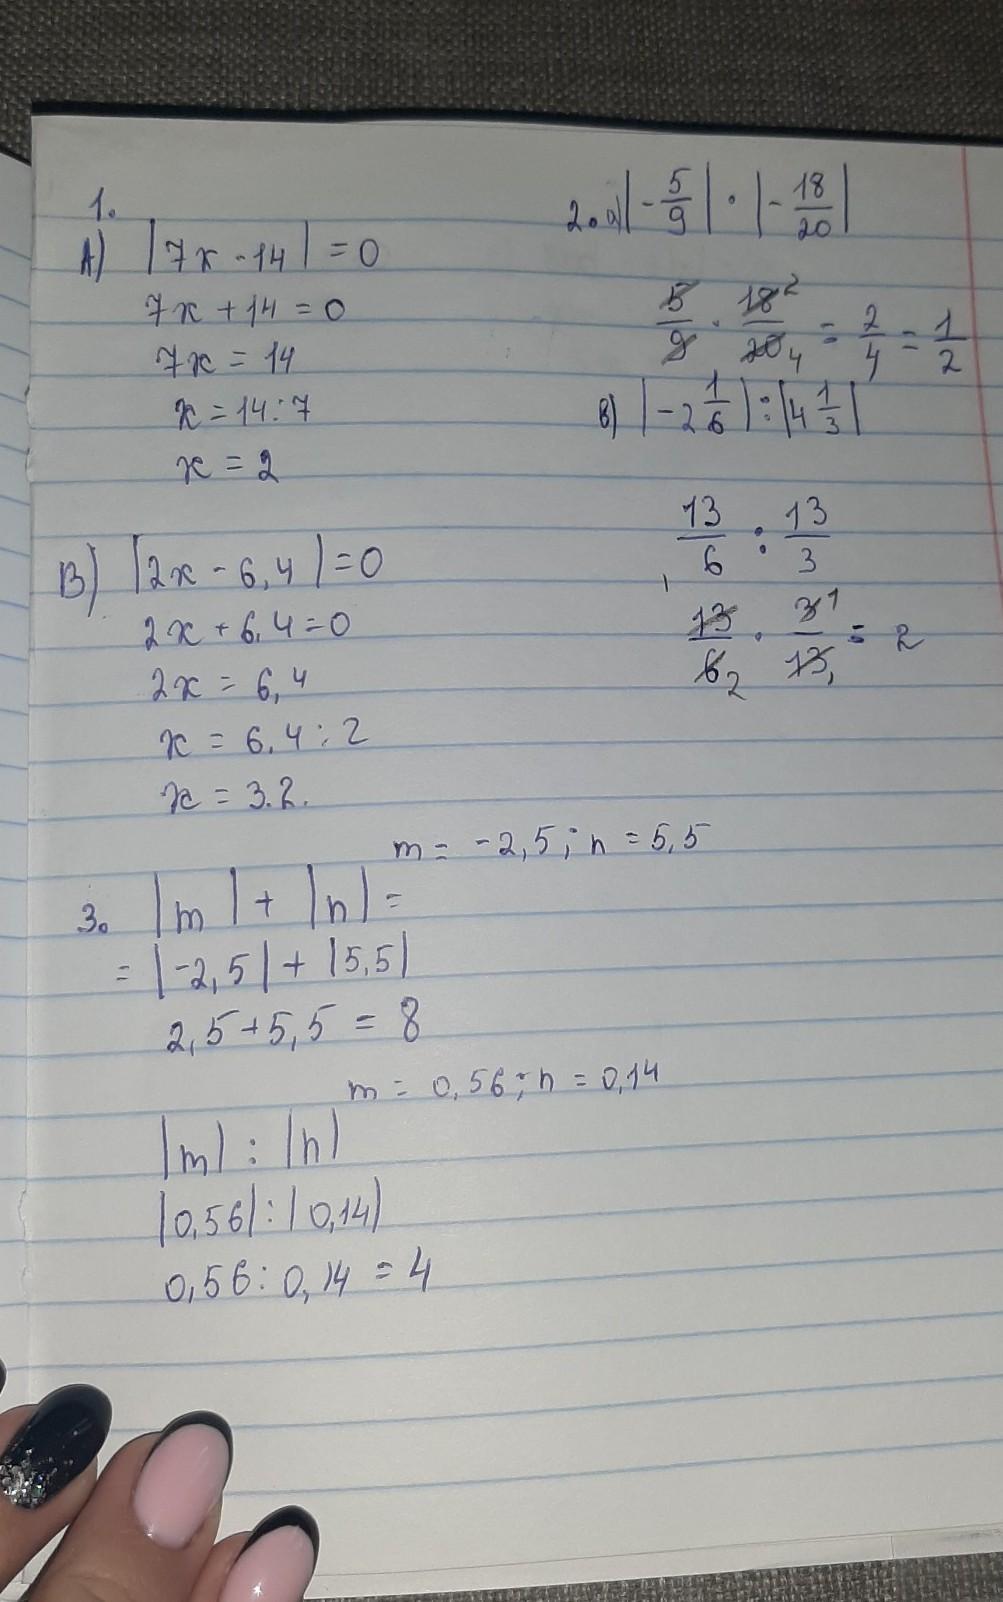 1.
A) |7x - 14| = 0
7x + 14 = 0
7x = 14
x = 14 : 7
x = 2
B) |2x - 6,4| = 0
2x + 6,4 = 0
2x = 6,4
x = 6,4 : 2
x = 3.2.
2. a) |-5/9| · |-18/20|
5/9 · 18²/20₄ = 2/4 = 1/2
B) |-2 1/6| : |4 1/3|
13/6 : 13/3
¹13/6₂ · 3¹/13₁ = 2
m = -2,5 ; n = 5,5
3. |m| + |n| =
= |-2,5| + |5,5|
2,5 + 5,5 = 8
m = 0,56 ; n = 0,14
|m| : |n|
|0,56| : |0,14|
0,56 : 0,14 = 4